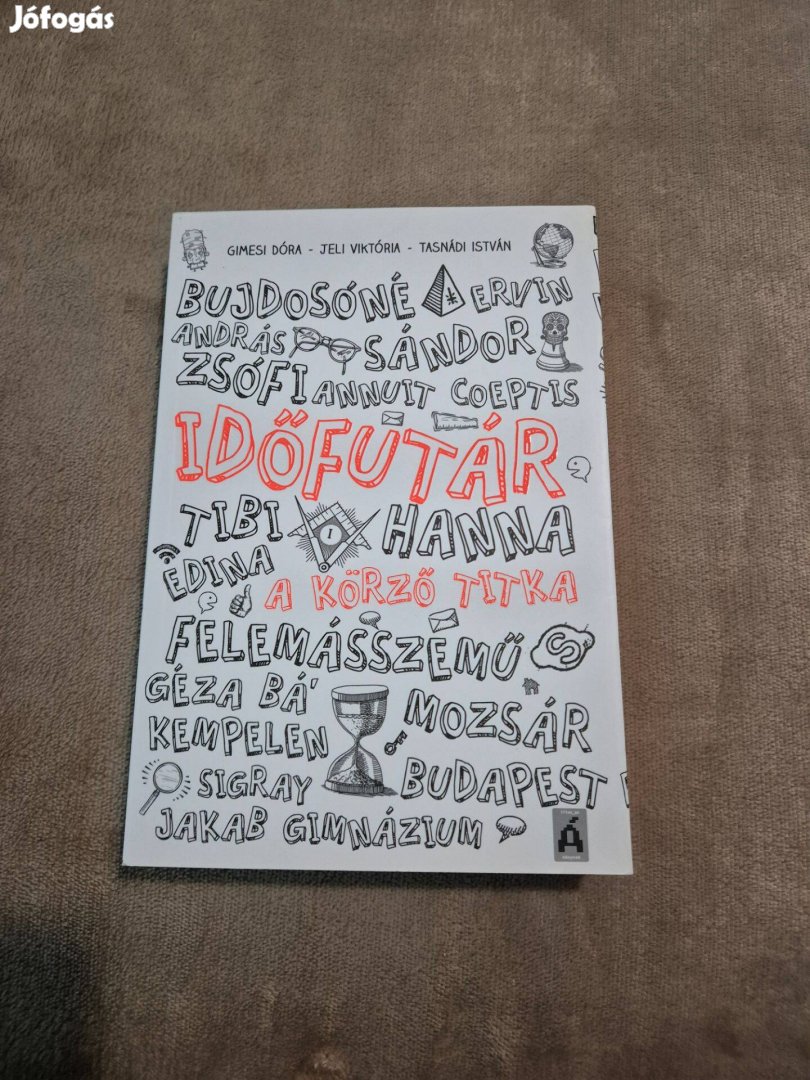 Jófogás
GIMESI DÓRA - JELI VIKTÓRIA - TASNÁDI ISTVÁN
BUJDOSÓNÉ ERVIN
ANDRÁS SÁNDOR
ZSÓFI ANNUIT COEPTIS
IDŐFUTÁR
TIBI HANNA
EDINA
A KÖRZŐ TITKA
FELEMÁSSZEMŰ
GÉZA BÁ'
MOZSÁR
KEMPELEN
SIGRAY BUDAPEST
JAKAB GIMNÁZIUM